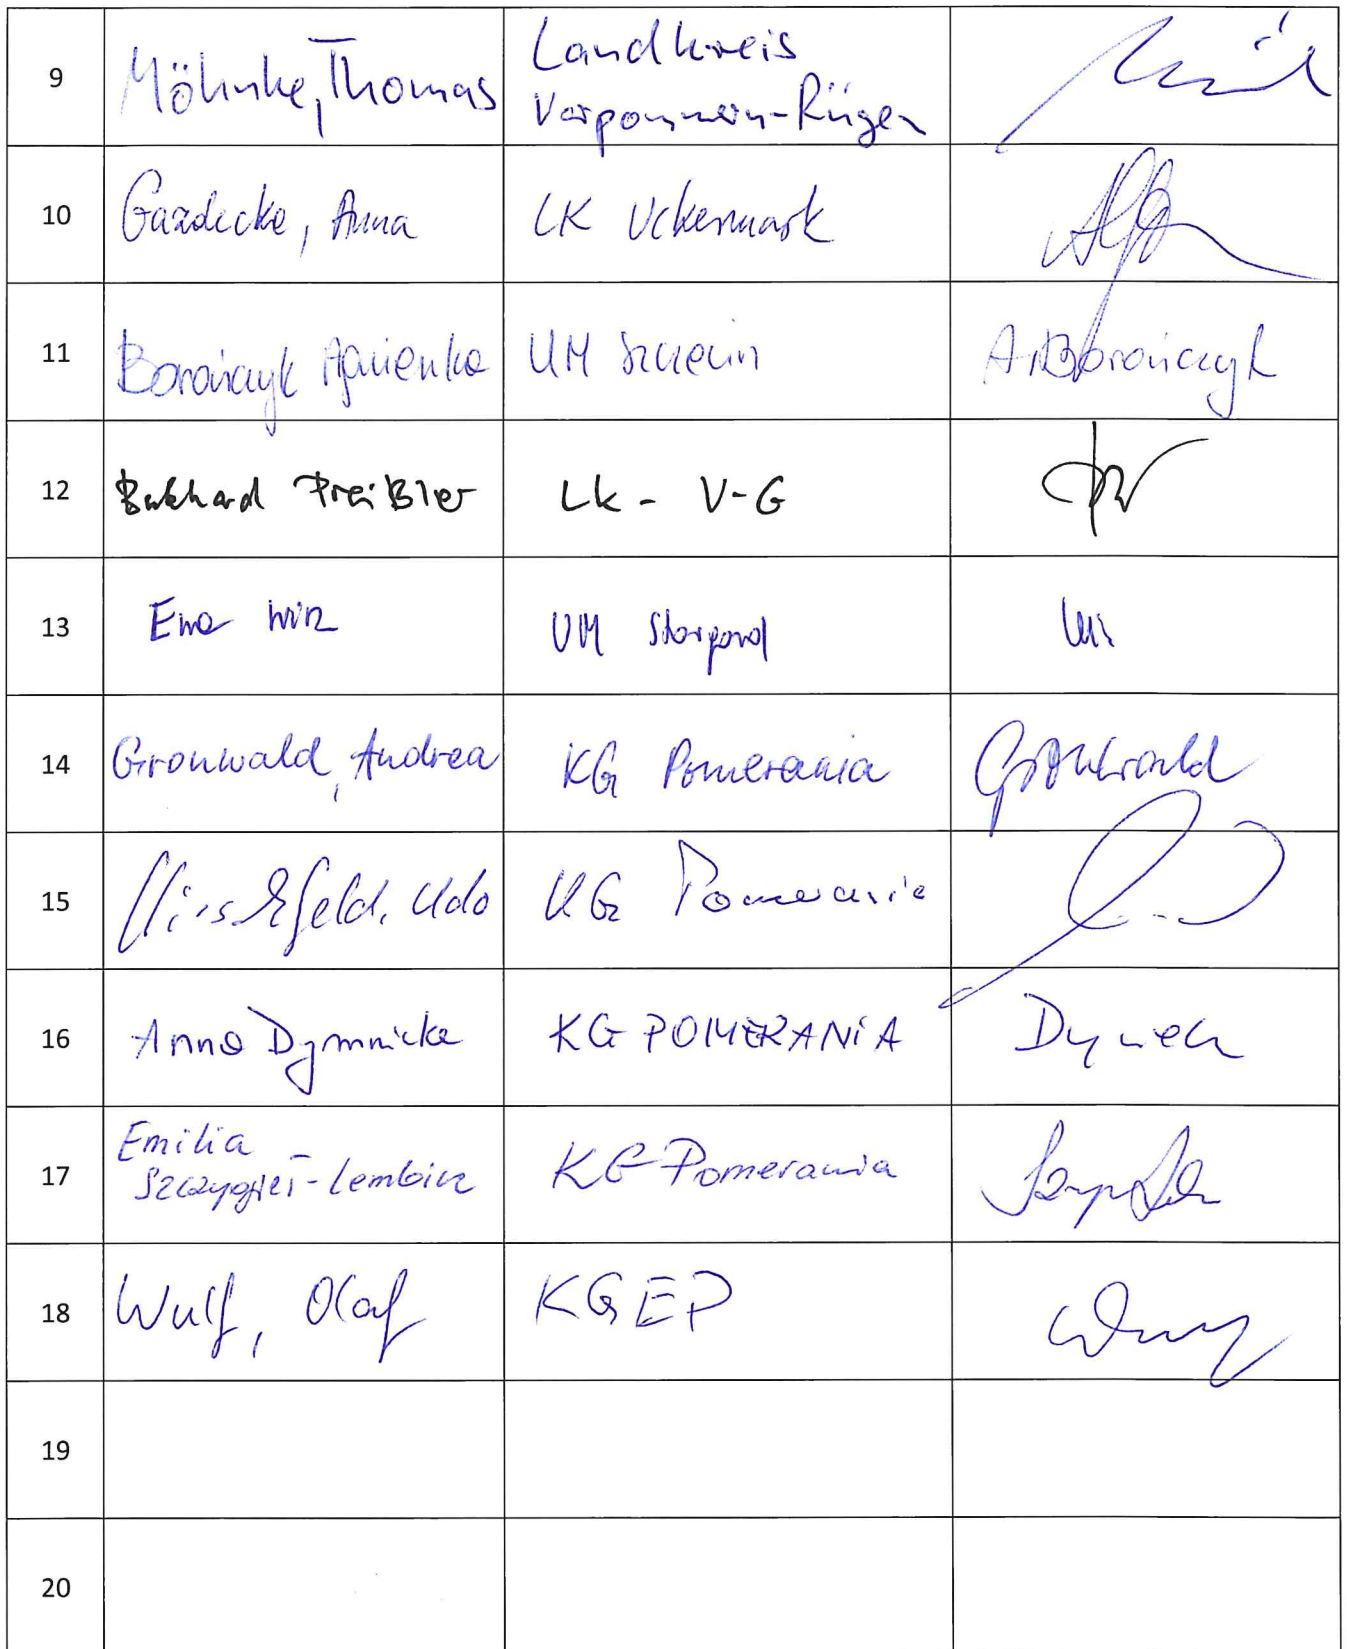 9 Möhnke, Thomas Landkreis
Vorpommern-Rügen
10 Gazdecka, Anna LK Uckermark
11 Borończyk Agnieszka UM Szczecin A. Borończyk
12 Burkhard Preißler LK - V-G
13 Ewa UM Stargard
14 Gronwald, Andrea KG Pomerania Gronwald
15 Hirschfeld, Udo KG Pomerania
16 Anna Dymnicka KG POMERANIA
17 Emilia
Szczygieł-Lembicz KG Pomerania
18 Wulf, Olaf KGEP
19
20